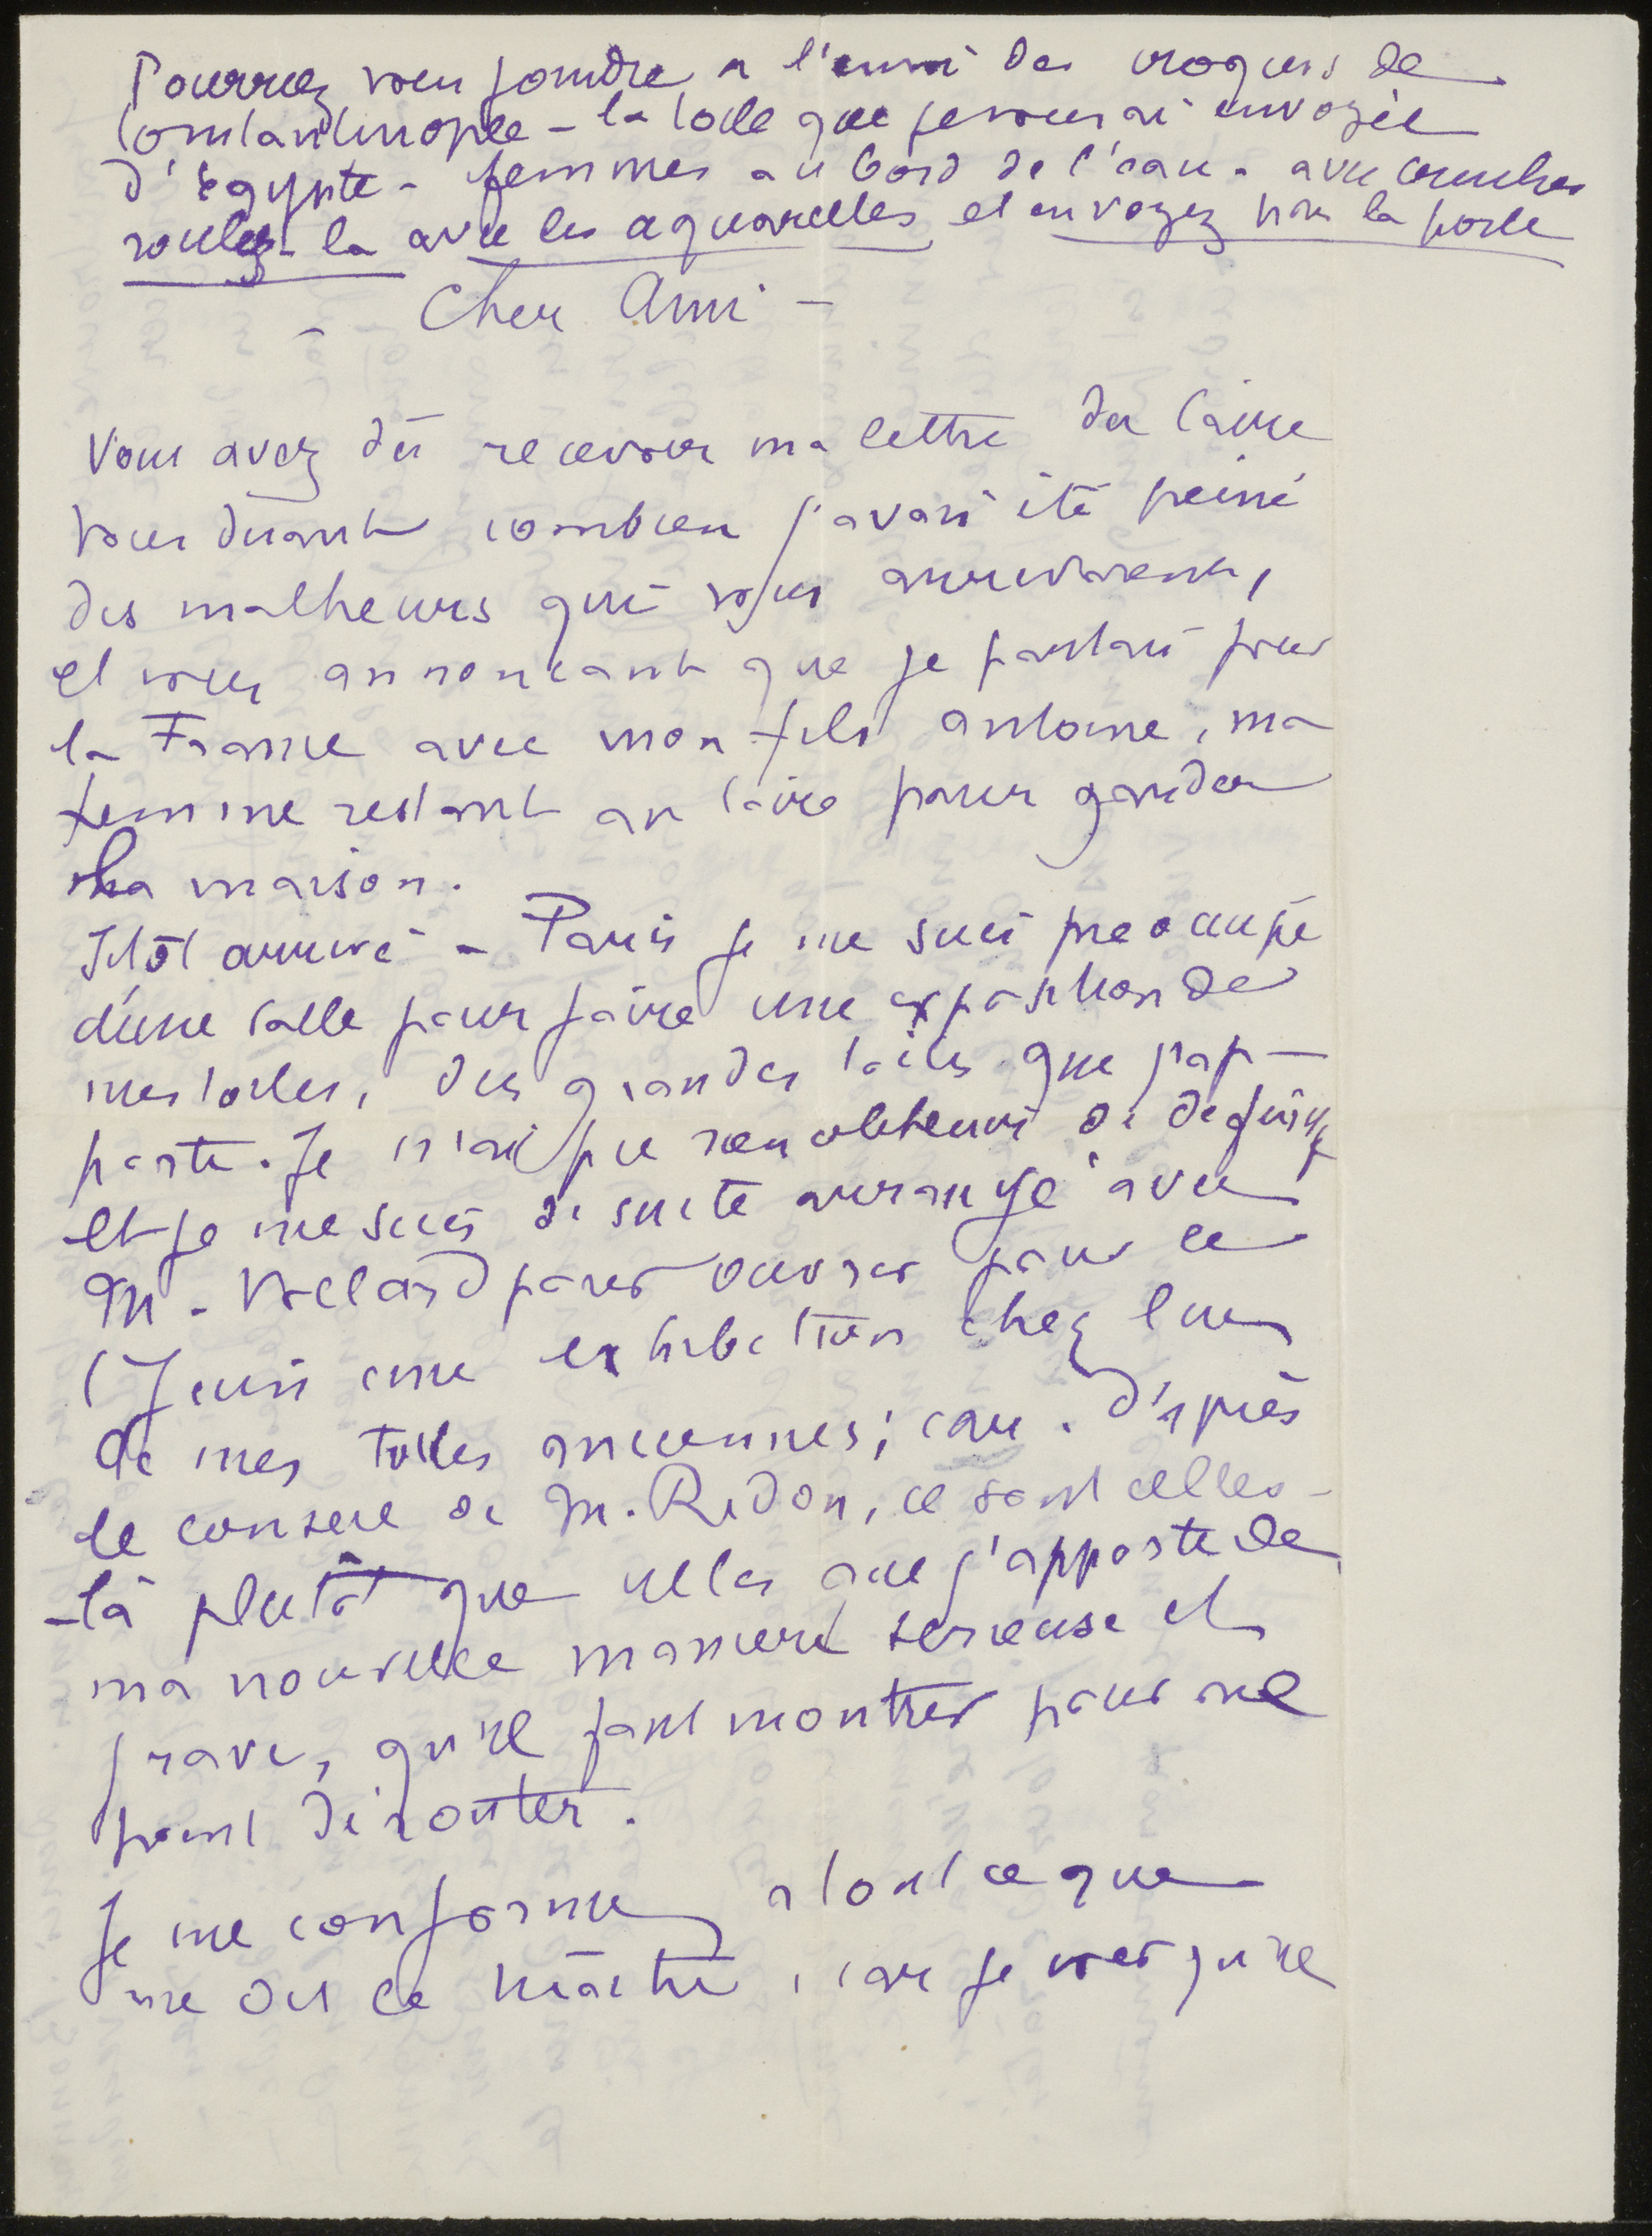 Pourriez vous joindre a l'envoi des croquis de
Constantinople - la toile que je vous ai envoyée
d'Egypte - femmes au bord de l'eau - avec cruches
roulez-la avec les aquarelles et envoyez par la poste
- Cher Ami -
Vous avez dû recevoir ma lettre du Caire
vous disant combien j'avais été peiné
des malheurs qui vous arrivaient,
et vous annoncant que je partais pour
la France avec mon fils antoine, ma
femme restant au Caire pour garder
la maison.
Sitôt arrivé a Paris je me suis préoccupé
d'une salle pour faire une exposition de
mes toiles, des grandes toiles que j'ap-
porte. Je n'ai pu rien obtenir de
et je me suis de suite arrangé avec
M. Vollard pour ouvrir pour le
17 juin une exhibition chez lui
de mes toiles anciennes; car. d'après
le conseil de M. Redon, ce sont celles-
-là plutôt que celles que j'apporte de
ma nouvelle maniere serieuse et
grave, qu'il faut montrer pour ne
point dérouter.
Je me conforme a tout ce que
me dit ce Maître, car je vois qu'il